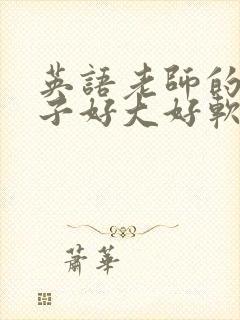 英語老師的
子好大好軟
蕭華